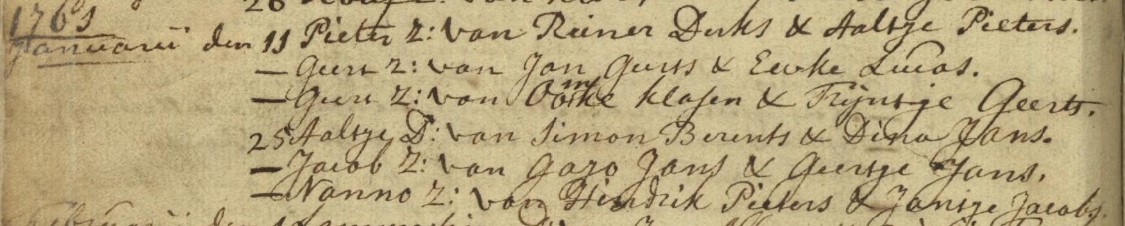 1761
Januarii den 11 Pieter Z: van Reiner Derks & Aaltje Pieters.
— Geert Z: van Jan Geerts & Eevke Lucas.
— Geert Z: van Klasen & Trijntje Geerts.
25 Aaltje D: van Simon Berents & Dina Jans.
— Jacob Z: van Gazo Jans & Geertje Jans.
— Nanno Z: van Hindrik Pieters & Jantje Jacobs.
Februarii den